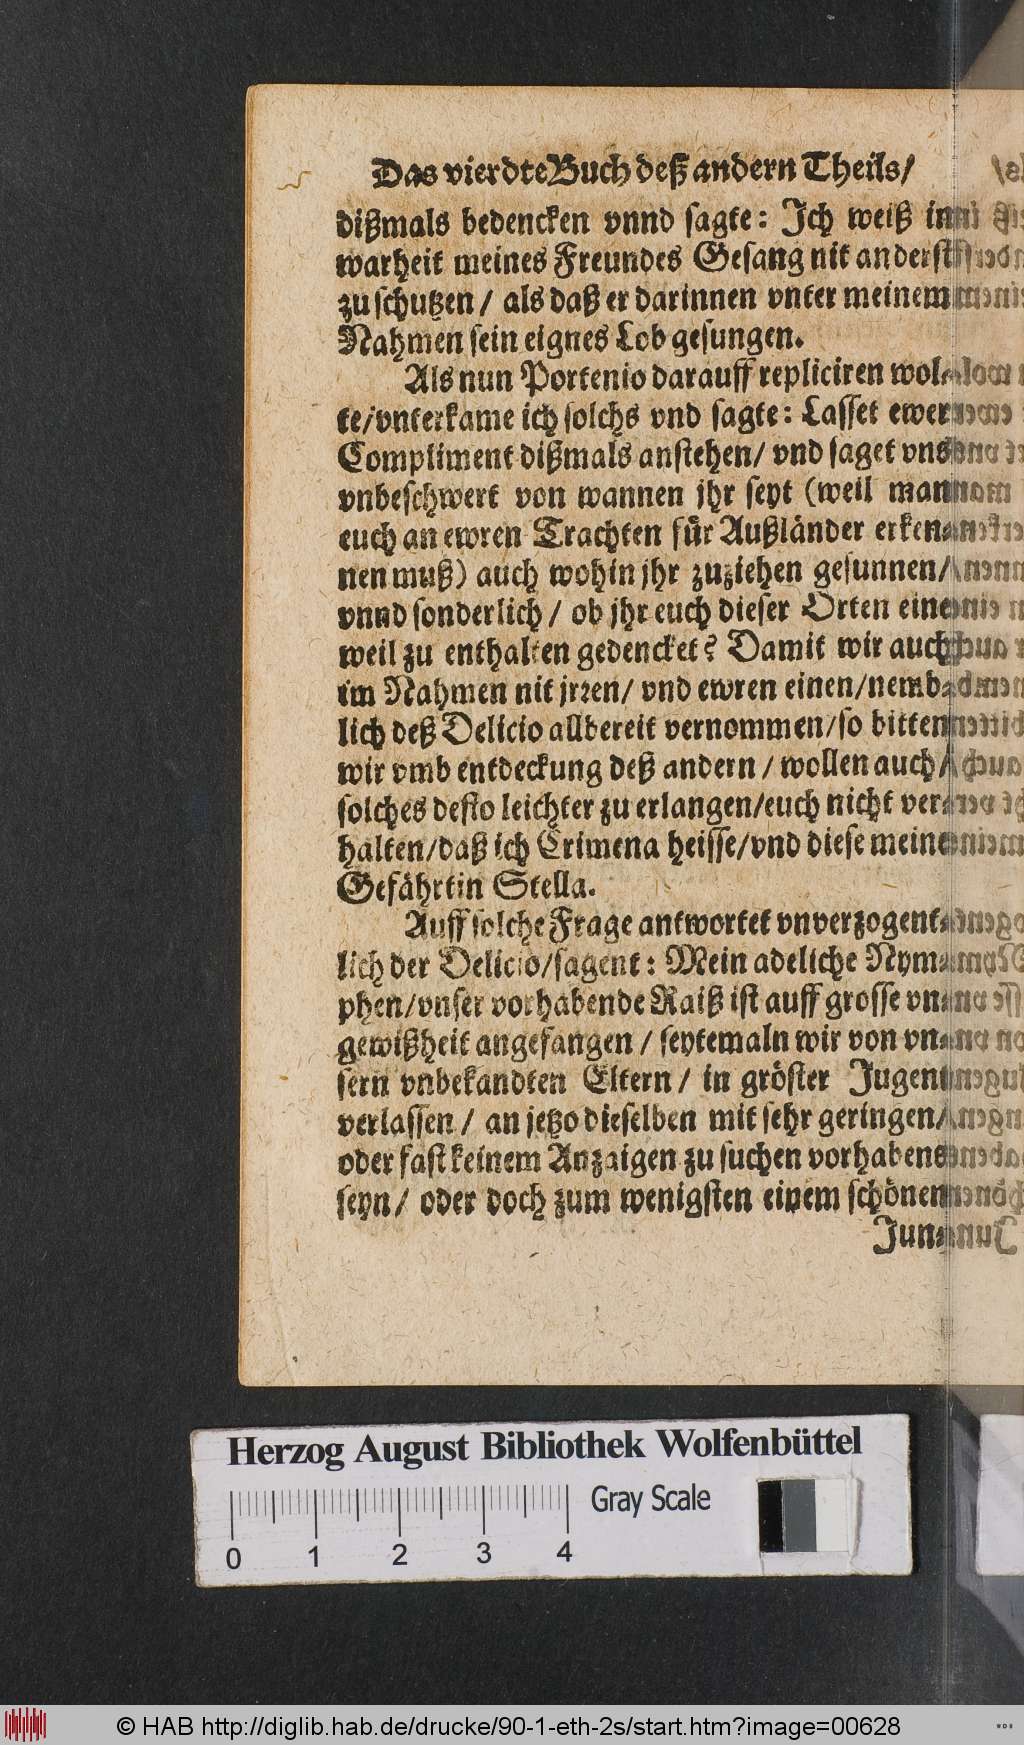 Das vierdte Buch deß andern Theils/
dißmals bedencken vnnd sagte: Ich weiß inn
warheit meines Freundes Gesang nit anderst
zu schutzen / als daß er darinnen vnter meinem
Nahmen sein eignes Lob gesungen.
Als nun Portenio darauff repliciren wol-
te/vnterkame ich solchs vnd sagte: Lasset ewer
Compliment dißmals anstehen/ vnd saget vns
vnbeschwert von wannen jhr seyt (weil man
euch an ewren Trachten für Außländer erken-
nen muß) auch wohin jhr zuziehen gesunnen/
vnnd sonderlich / ob jhr euch dieser Orten eine
weil zu enthalten gedencket? Damit wir auch
im Nahmen nit jrren/ vnd ewren einen/nemb-
lich deß Delicio allbereit vernommen/so bitten
wir vmb entdeckung deß andern / wollen auch/
solches desto leichter zu erlangen/euch nicht ver-
halten/daß ich Crimena heisse/vnd diese meine
Gefährtin Stella.
Auff solche Frage antwortet vnverzogent-
lich der Delicio/sagent: Mein adeliche Nym-
phen/vnser vorhabende Raiß ist auff grosse vn-
gewißheit angefangen / seytemaln wir von vn-
sern vnbekandten Eltern / in gröster Jugent
verlassen / an jetzo dieselben mit sehr geringen/
oder fast keinem Anzaigen zu suchen vorhabens
seyn / oder doch zum wenigsten einem schönen
Jun-
Herzog August Bibliothek Wolfenbüttel
Gray Scale
0 1 2 3 4
© HAB http://diglib.hab.de/drucke/90-1-eth-2s/start.htm?image=00628